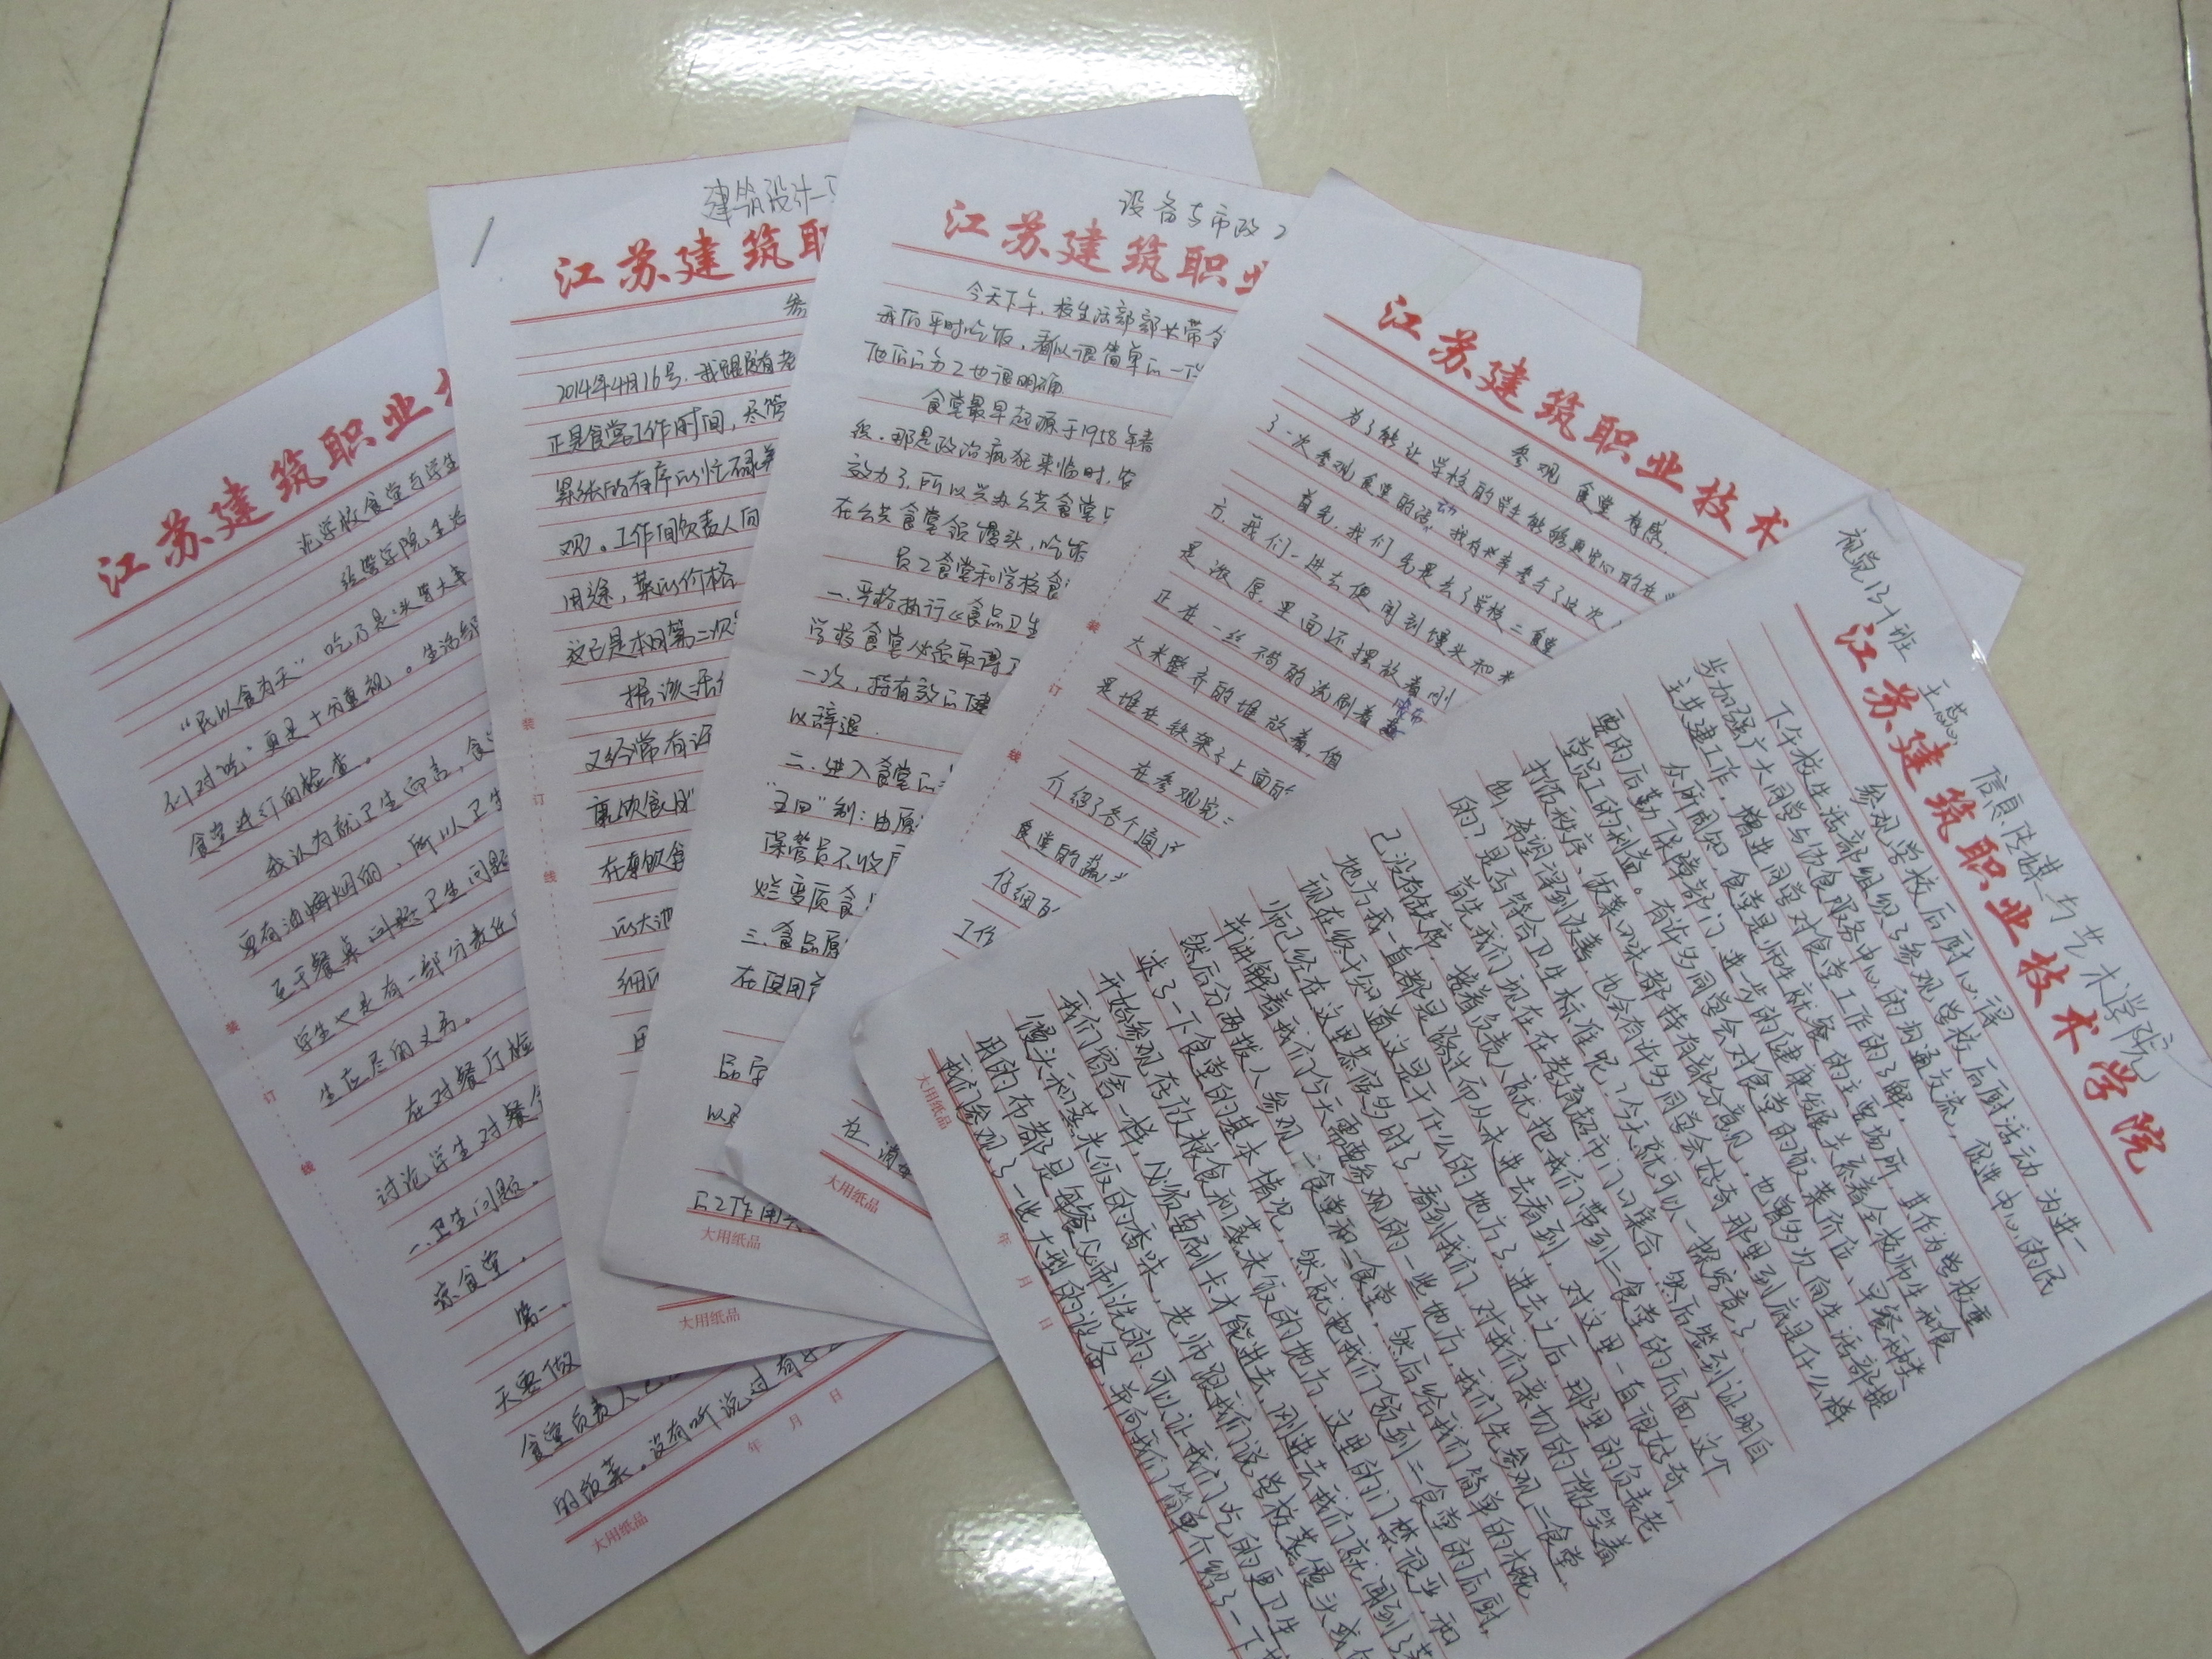 江苏建筑职业
论学校食堂与学生
经管学院、生活
“民以食为天”吃乃是头等大事
们对“吃”更是十分重视。生活部
食堂进行的检查。
我认为就卫生而言，食堂
里有油烟的，所以卫生
至于餐桌问题卫生问题
学生也是有一部分责任
生应尽的义务。
在对餐厅检
讨论学生对餐
一.卫生问题。
京食堂，
第一、
天要做
食堂负责人
的饭菜。没有听说过有
年 月 日
大用纸品
装
订
线
建筑设计
江苏建筑职
参
2014年4月16号，我跟随着老
正是食堂工作时间，尽管
紧张的有序的忙碌着
观。工作间负责人向
用途，菜的价格
这已是本周第二次
据该
又经常有
高饮食
在膳饮食
的大池
细
用
大用纸品
装
订
线
设备与市政
江苏建筑职业
今天下午，校生活部部长带
我们平时吃饭，看似很简单的一
他们的分工也很明确
食堂最早起源于1958年
那是政治疯狂来临时，农
效力了，所以兴办公共食堂
在公共食堂领馒头，吃
员工食堂和学校食
一.严格执行《食品卫生
学校食堂必须取得卫
一次，持有效的健
以辞退.
二.进入食堂的
“五四”制：由原
保管员不收
烂变质食
三.食品原
在使用
品
以
工作
大用纸品
江苏建筑职业技术
参观食堂有感.
为了能让学校的学生能够更安心的在
了一次参观食堂的活动，我有幸参与了这次
首先，我们先是去了学校二食堂
方，我们一进去便闻到馒头和
是浓厚，里面还摆放着刚
正在一丝不苟的洗刷着
大米整齐的堆放着，值
是堆在铁架子上面的
在参观完二
介绍了各个通
食堂的蔬
仔细
工作
在清
大用纸品
装
订
线
视觉13-1班
王蕊
信息传媒与艺术学院
江苏建筑职业技术学院
参观学校后厨心得
下午校生活部组织了参观学校后厨活动，为进一
步加强广大同学与饮食服务中心的沟通交流，促进中心的民
主共建工作，增进同学对食堂工作的了解。
众所周知，食堂是师生就餐的主要场所，其作为学校重
要的后勤保障部门，进一步的健康发展关系着全校师生和食
堂员工的利益。有许多同学会对食堂的饭菜价位、早餐种类
打饭秩序、饭菜口味都持有部分意见，也曾多次向生活部提
出，希望得到改善，也会有许多同学会好奇那里到底是什么样
的？是否符合卫生标准呢？今天就可以一探究竟了。
首先我们现在在教育超市门口集合，然后签到证明自
己没有缺席，接着负责人就把我们带到二食堂的后面，这个
地方我一直都是路过而从未进去看到，对这里一直很好奇，
现在终于知道这是干什么的地方了，进去之后，那里的负责老
师已经在这里恭候多时了，看到我们，对我们亲切的微笑着
并讲解着我们今天需要参观的一些地方，我们先参观二食堂，
然后分两拨人参观一食堂和三食堂，然后给我们简单的概
述了一下食堂的基本情况，然后就把我们领到二食堂的后厨，
开始参观存放粮食和蒸米饭的地方，这里的门禁很严，和
我们宿舍一样，必须要刷卡才能进去，刚进去我们就闻到了蒸
馒头和蒸米饭的香味，老师跟我们说学校蒸馒头或
用的布都是每餐必刷洗的，可以让我们吃的更卫生
我们参观了一些大型的设备，并向我们简单介绍了一下
年 月 日
大用纸品